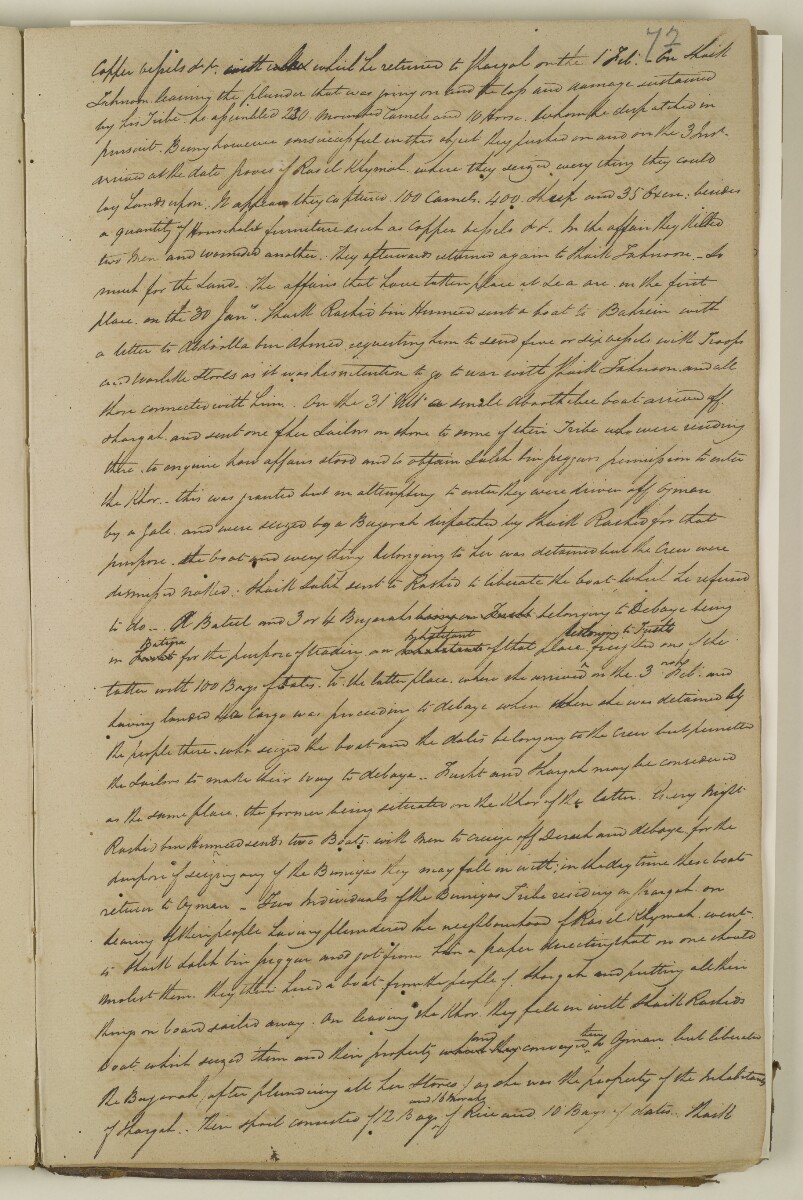 72
Copper vessels &c. with which he returned to Shargah on the 1 Feb. On Shaik
Tahnoon learning the plunder that was going on and the loss and damage sustained
by his Tribe he assembled 230 mounted Camels and 10 Horse whom he dispatched in
pursuit. Being however unsuccessful in this object they pushed on and on the 3 Inst.
arrived at the date groves of Rasel Khymah, where they seized every thing they could
lay Hands upon. It appears they captured 100 Camels, 400 Sheep and 35 Oxen, besides
a quantity of Household furniture such as Copper vessels &c. In the affair they killed
two Men and wounded another. They afterwards returned again to Shaik Tahnoon. So
much for the Land. The affairs that have taken place at Sea are in the first
place, on the 30 Jany. Shaik Rashid bin Humeed sent a boat to Bahrein with
a letter to Abdoolla bin Ahmed requesting him to send five or six vessels with Troops
and warlike stores as it was his intention to go to war with Shaik Tahnoon and all
those connected with him. On the 31 a small Aboothabee boat arrived off
Shargah and sent one of her Sailors on shore to some of their Tribe who were residing
there, to enquire how affairs stood and to obtain Sulth bin Suggurs permission to enter
the Khor. this was granted but on attempting to enter they were driven off Ejman
by a Gale and were seized by a Bugarah dispatched by Shaik Rashid for that
purpose. the boat and every thing belonging to her was detained but the Crew were
dismissed naked. Shaik Sulth sent to Rashid to liberate the boat which he refused
to do. A Bateel and 3 or 4 Bugarahs belonging to Debaye being
in Batigna for the purpose of trading, an Inhabitant of that place belonging to Fusht freighted one of the
latter with 100 Bags of dates to the latter place, where she arrived on the 3 Feb. and
having landed her Cargo was proceeding to debaye when she was detained by
the people there, who seized the boat and the dates belonging to the Crew but permitted
the Sailors to make their way to debaye. Fusht and Shargah may be considered
as the same place, the former being situated on the Khor of the latter. Every Night
Rashid bin Humeed sends two Boats with Men to cruize off and debaye for the
purpose of seizing any of the Beniyas they may fall in with, in the day time these boats
return to Ejman. Two Individuals of the Beniyas Tribe residing in Shargah on
hearing of their people having plundered the neighbourhood of Rasel Khymah went
to Shaik Sulth bin Suggur and got from him a paper directing that no one should
molest them. they then hired a boat from the people of Shargah and putting all their
things on board sailed away. On leaving the Khor they fell in with Shaik Rashids
boat which seized them and their property and conveyed them to Ejman but liberated
the Bugarah (after plundering all her Stores) as she was the property of the Inhabitants
of Shargah. Their spoil consisted of 12 Bags and 16 Morahs of Rice and 10 Bags of dates. Shaik